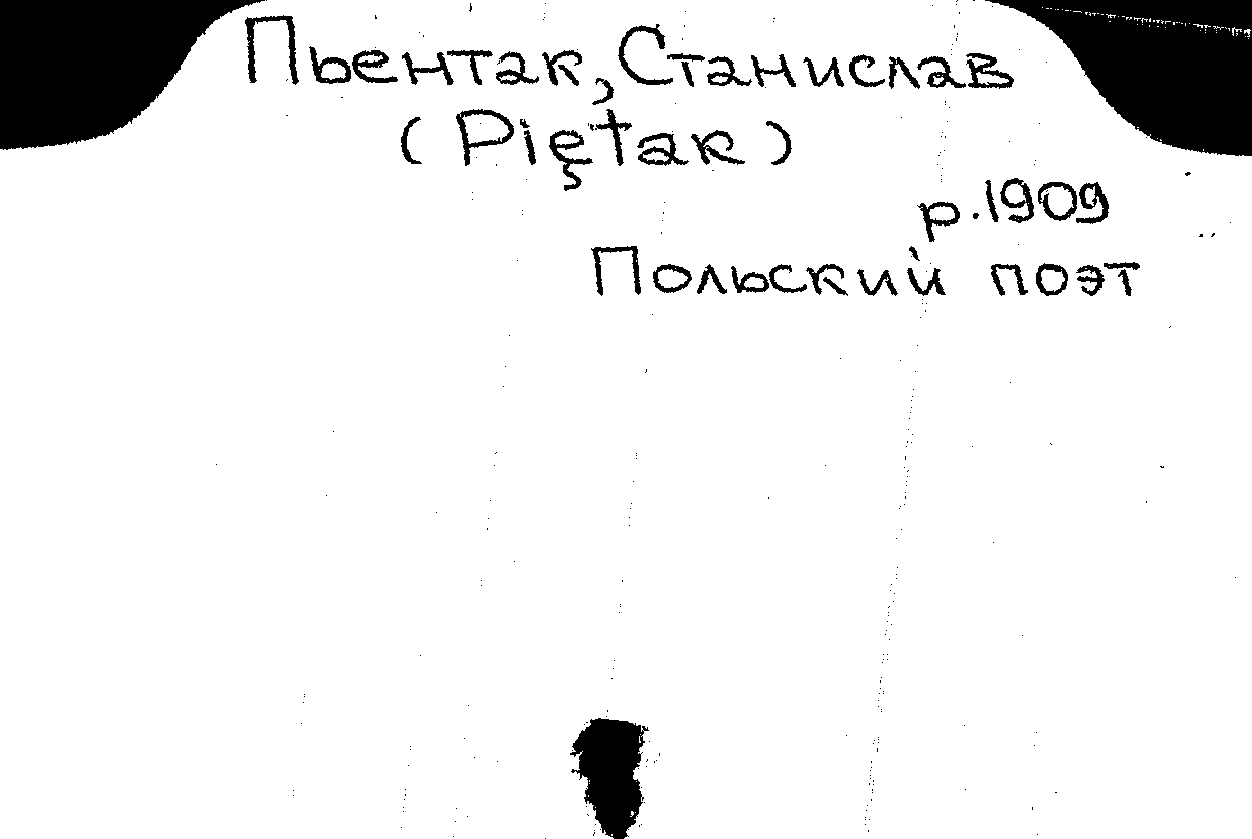 Пьентак, Станислав
(Piętak)
р. 1909
Польский поэт